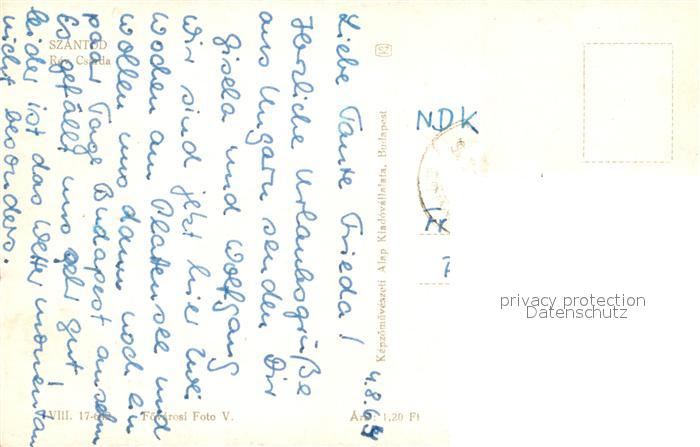 SZÁNTÓD
Rév Csárda
4.8.69
Liebe Tante Frieda!
Herzliche Urlaubsgrüße
aus Ungarn senden Dir
Gisela und Wolfgang
Wir sind jetzt hier zwei
Wochen am Plattensee und
wollen uns dann noch ein
paar Tage Budapest ansehn
Es gefällt uns sehr gut!
leider ist das Wetter momentan
nicht besonders.
VIII. 17-6
Fővárosi Foto V.
Ára: 1,20 Ft
Képzőművészeti Alap Kiadóvállalata, Budapest
NDK
privacy protection
Datenschutz